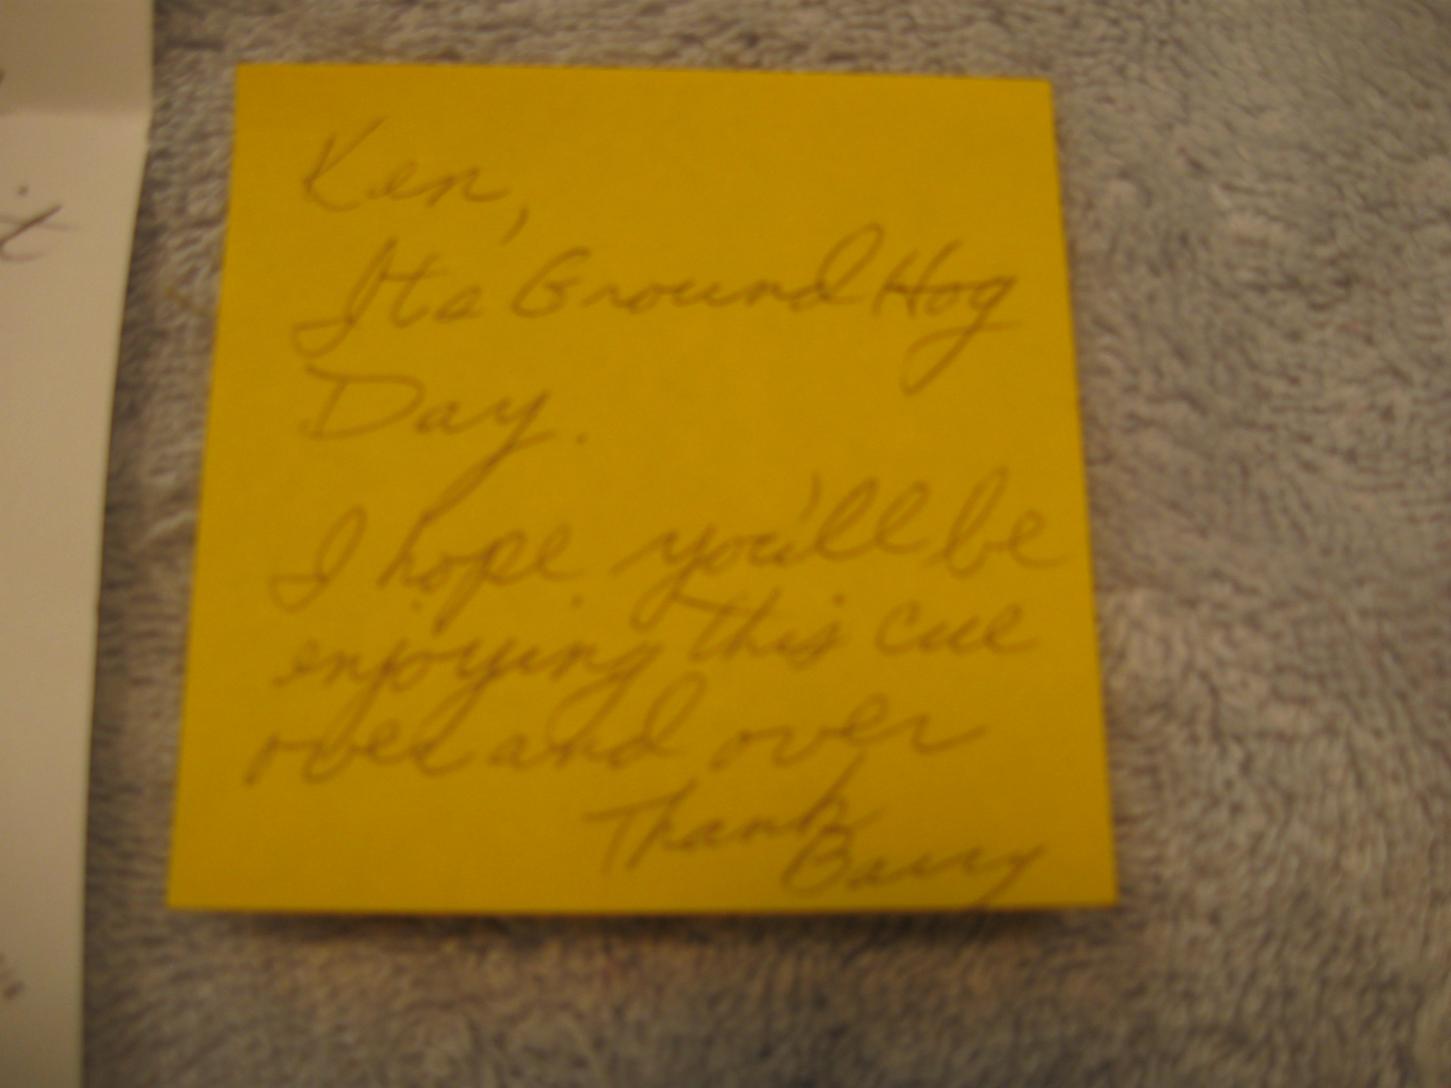 Ken,
Its Ground Hog
Day.
I hope you'll be
enjoying this cue
over and over
Thank
Barry